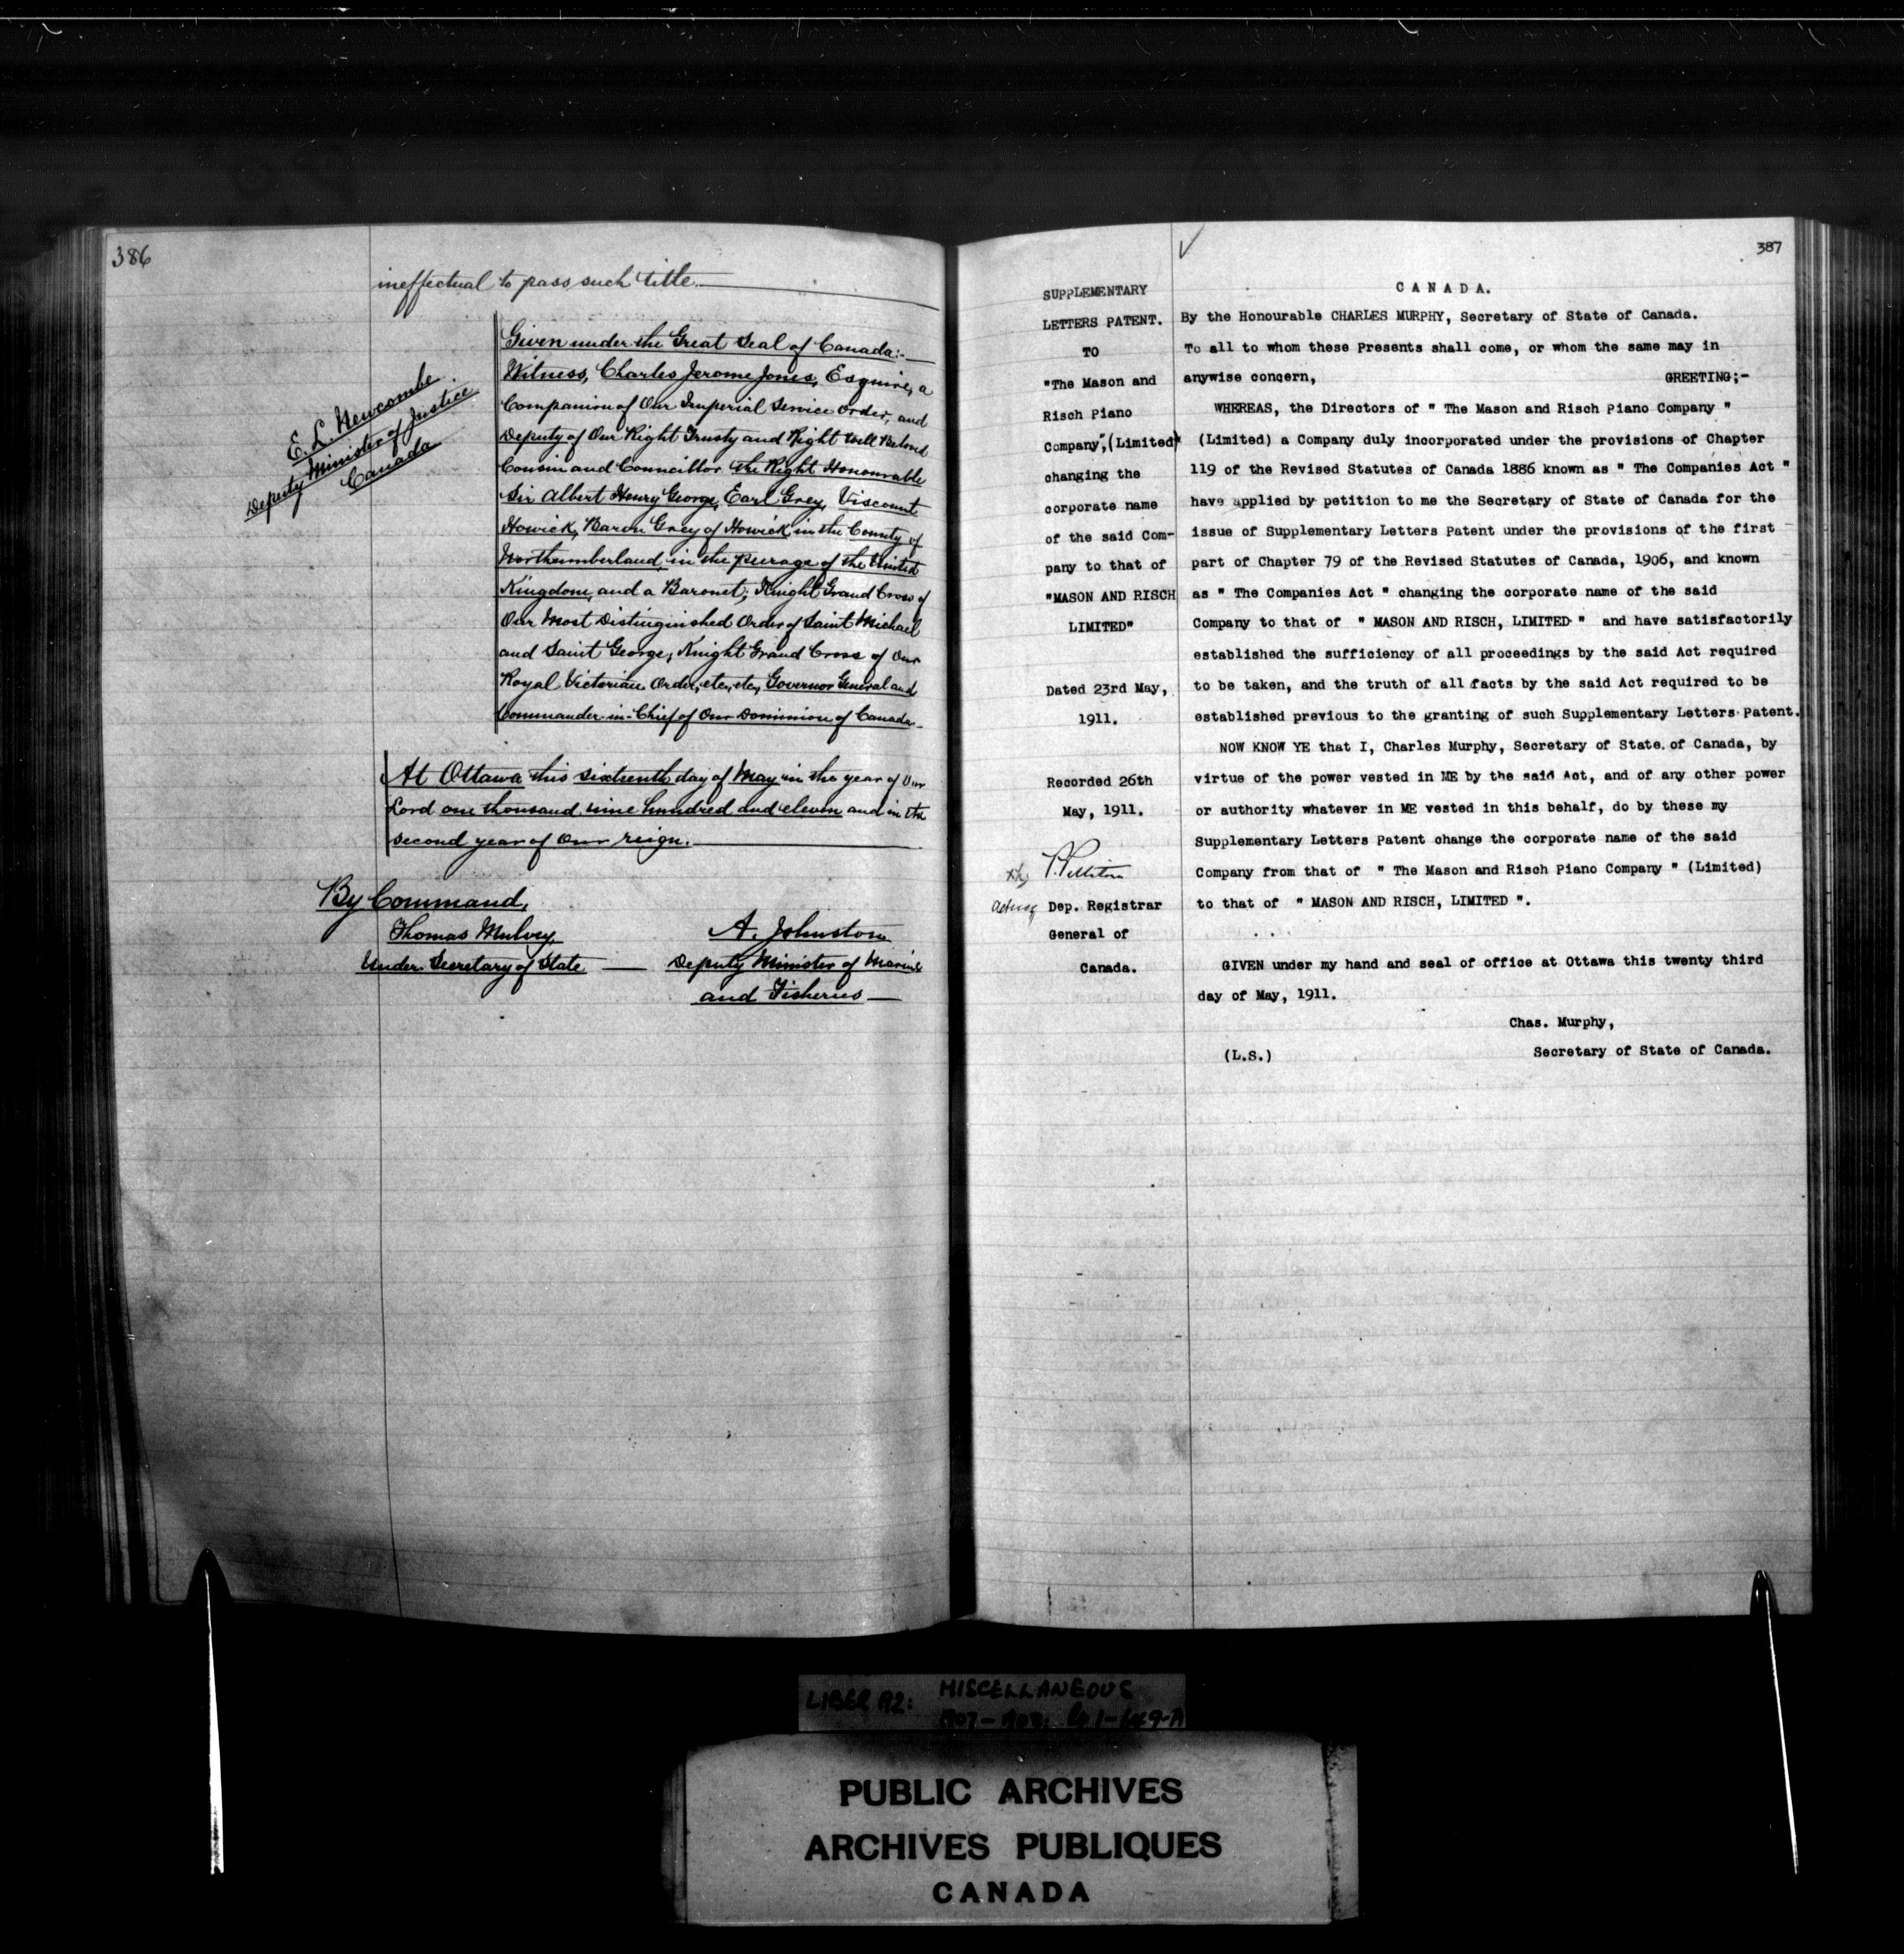 386
ineffectual to pass such title
Given under the Great Seal of Canada:-
Witness, Charles Jerome Jones, Esquire, a
Companion of Our Imperial Service Order, and
Deputy of Our Right Trusty and Right Well Beloved
Cousin and Councillor the Right Honourable
Sir Albert Henry George, Earl Grey, Viscount
Howick, Baron Grey of Howick in the County of
Northumberland, in the peerage of the United
Kingdom, and a Baronet; Knight Grand Cross of
Our Most Distinguished Order of Saint Michael
and Saint George, Knight Grand Cross of Our
Royal Victorian Order, etc, etc, Governor General and
Commander-in-Chief of Our Dominion of Canada.
E. L. Newcombe
Deputy Minister of Justice
Canada
At Ottawa this sixteenth day of May in the year of Our
Lord one thousand nine hundred and eleven and in the
second year of Our reign.
By Command,
Thomas Mulvey
Under-Secretary of State
A. Johnston
Deputy Minister of Marine
and Fisheries
387
SUPPLEMENTARY
LETTERS PATENT.
TO
"The Mason and
Risch Piano
Company",(Limited)
changing the
corporate name
of the said Com-
pany to that of
"MASON AND RISCH
LIMITED"
Dated 23rd May,
1911.
Recorded 26th
May, 1911.
P. Pelletier
Acting Dep. Registrar
General of
Canada.
CANADA.
By the Honourable CHARLES MURPHY, Secretary of State of Canada.
To all to whom these Presents shall come, or whom the same may in
anywise concern, GREETING;-
WHEREAS, the Directors of " The Mason and Risch Piano Company "
(Limited) a Company duly incorporated under the provisions of Chapter
119 of the Revised Statutes of Canada 1886 known as " The Companies Act "
have applied by petition to me the Secretary of State of Canada for the
issue of Supplementary Letters Patent under the provisions of the first
part of Chapter 79 of the Revised Statutes of Canada, 1906, and known
as " The Companies Act " changing the corporate name of the said
Company to that of " MASON AND RISCH, LIMITED " and have satisfactorily
established the sufficiency of all proceedings by the said Act required
to be taken, and the truth of all facts by the said Act required to be
established previous to the granting of such Supplementary Letters Patent.
NOW KNOW YE that I, Charles Murphy, Secretary of State of Canada, by
virtue of the power vested in ME by the said Act, and of any other power
or authority whatever in ME vested in this behalf, do by these my
Supplementary Letters Patent change the corporate name of the said
Company from that of " The Mason and Risch Piano Company " (Limited)
to that of " MASON AND RISCH, LIMITED ".
GIVEN under my hand and seal of office at Ottawa this twenty third
day of May, 1911.
Chas. Murphy,
(L.S.) Secretary of State of Canada.
LIBER A2: MISCELLANEOUS
PUBLIC ARCHIVES
ARCHIVES PUBLIQUES
CANADA